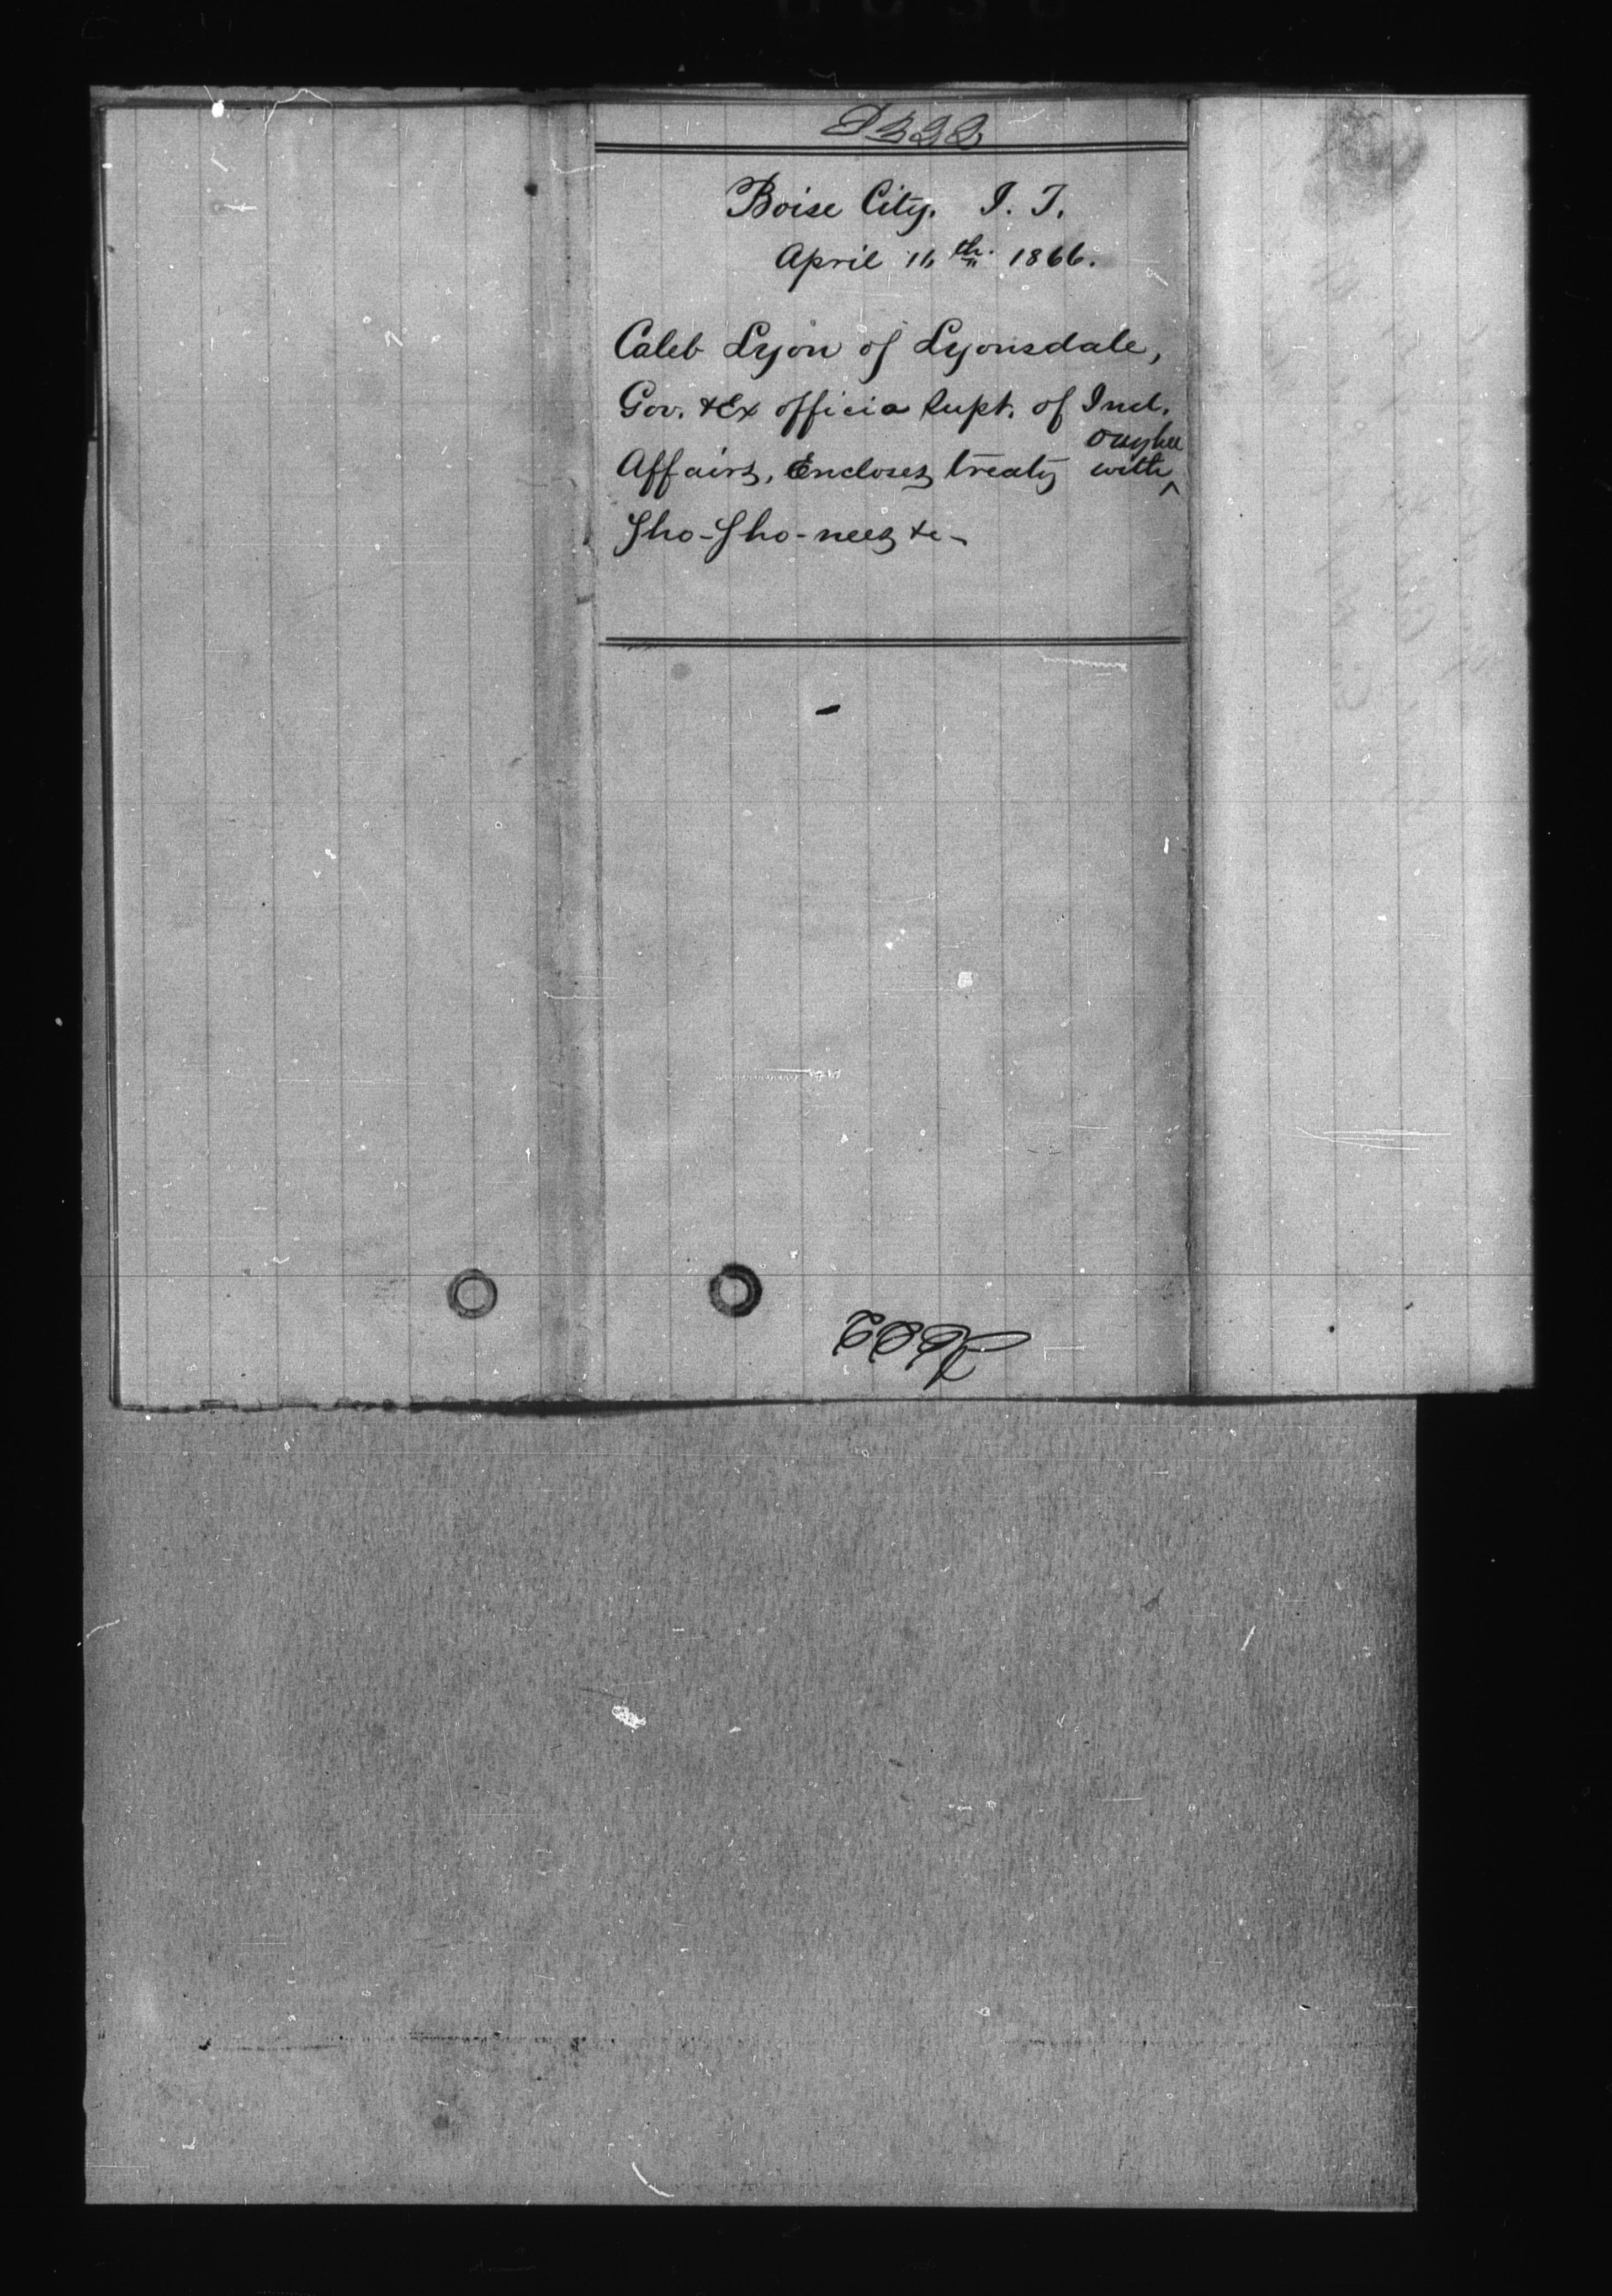 Boise City. I. T.
April 11,th. 1866.
Caleb Lyon of Lyonsdale,
Gov. & Ex officio Supt. of Ind.
Affairs, Encloses treaty with ^ Owyhee
Sho-Sho-nees &c-